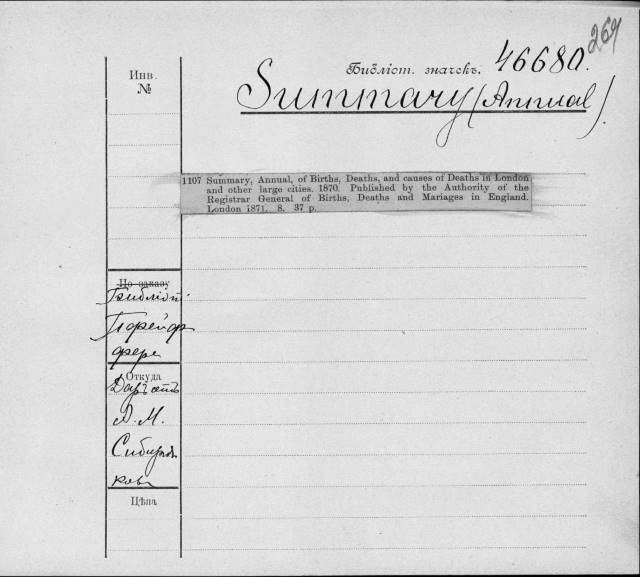 269
Инв.
№
Библіот. значекъ. 46680.
Summary (Annual).
1107 Summary, Annual, of Births, Deaths, and causes of Deaths in London
and other large cities. 1870. Published by the Authority of the
Registrar General of Births, Deaths and Mariages in England.
London 1871. 8. 37 p.
По заказу
Библіот.
Пфейф
фера
Откуда
Даръ отъ
А. М.
Сибиря
кова
Цѣна